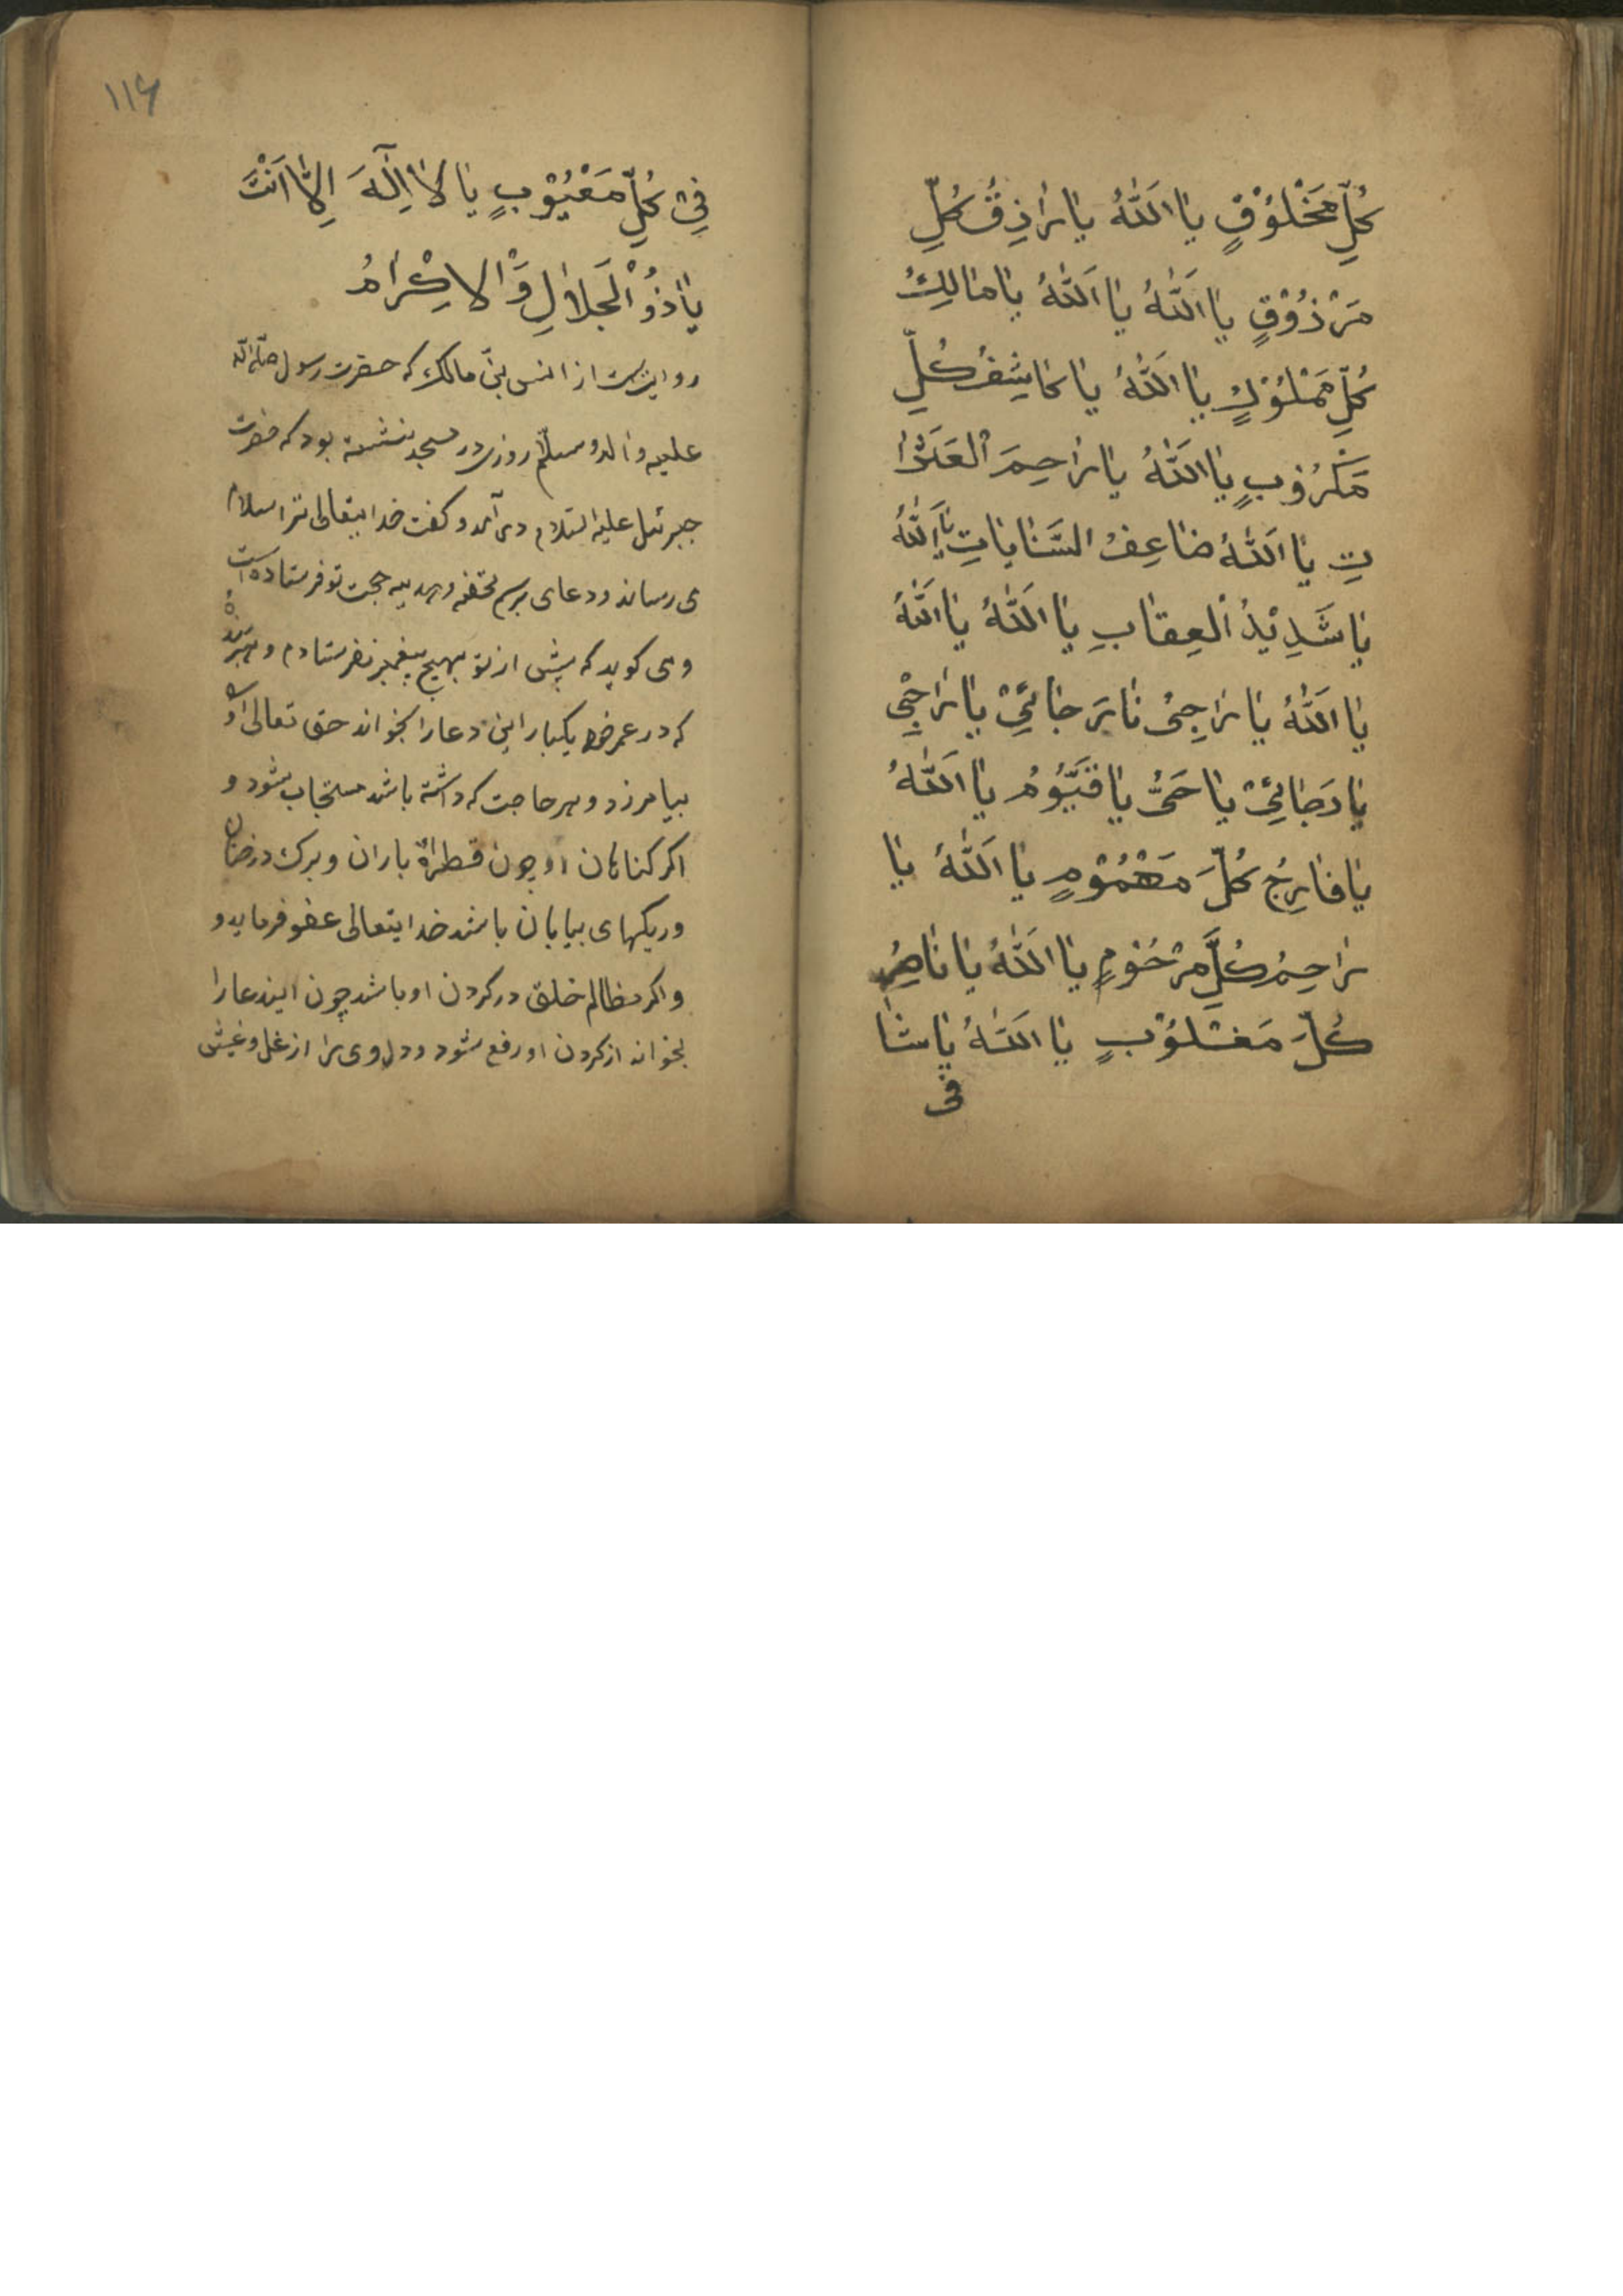 كُلِّ مَخْلُوْقٍ يَا اَللّٰهُ يَا رَازِقُ كُلِّ
مَرْزُوْقٍ يَا اَللّٰهُ يَا اَللّٰهُ يَا مَالِكُ
كُلِّ مَمْلُوْكٍ يَا اَللّٰهُ يَا كَاشِفُ كُلِّ
مَكْرُوْبٍ يَا اَللّٰهُ يَا رَاحِمَ الْعَثَرَا
تِ يَا اَللّٰهُ ضَاعِفُ السَّنَايَاتِ يَا اَللّٰهُ
يَا شَدِيْدُ الْعِقَابِ يَا اَللّٰهُ يَا اَللّٰهُ
يَا اَللّٰهُ يَا رَاجِىُ نَارَجَائِىْ يَا رَاجِىْ
يَا رَجَائِىْ يَا حَىُّ يَا قَيُّوْمُ يَا اَللّٰهُ
يَا فَارِجُ كُلِّ مَهْمُوْمٍ يَا اَللّٰهُ يَا
رَاحِمُ كُلِّ مَرْحُوْمٍ يَا اَللّٰهُ يَا نَاصِرُ
كُلِّ مَغْلُوْبٍ يَا اَللّٰهُ يَا شَا
فى
۱۱۶
فِىْ كُلِّ مَعْيُوْبٍ يَا لَا اِلٰهَ اِلَّا اَنْتَ
يَا ذُو الْجَلَالِ وَالْاِكْرَامُ
روایتست از انس بنّ مالک که حضرت رسول صلّی اللّه
علیه و اله و سلّم روزی در مسجد بنشسته بود که حضرت
جبرئیل علیه السّلام در آمد و کفت خدایتعالی ترا سلام
می رساند و دعای برسم تحفه و هدیه بجهت تو فرستاده است
و می کوید که پیش از تو بهیچ پیغمبر نفرستادم و هر بنده
که در عمر خود یکبار این دعا را بخواند حق تعالی او را
بیامرزد و هر حاجت که داشته باشد مستجاب شود و
اکر کناهان او چون قطرهٔ باران و برک درختان
و ریکهای بیابان باشد خدایتعالی عفو فرماید و
و اکر مظالم خلق در کردن او باشد چون ایندعا را
بخواند از کردن او رفع شود و دل وی را از غل و غیش